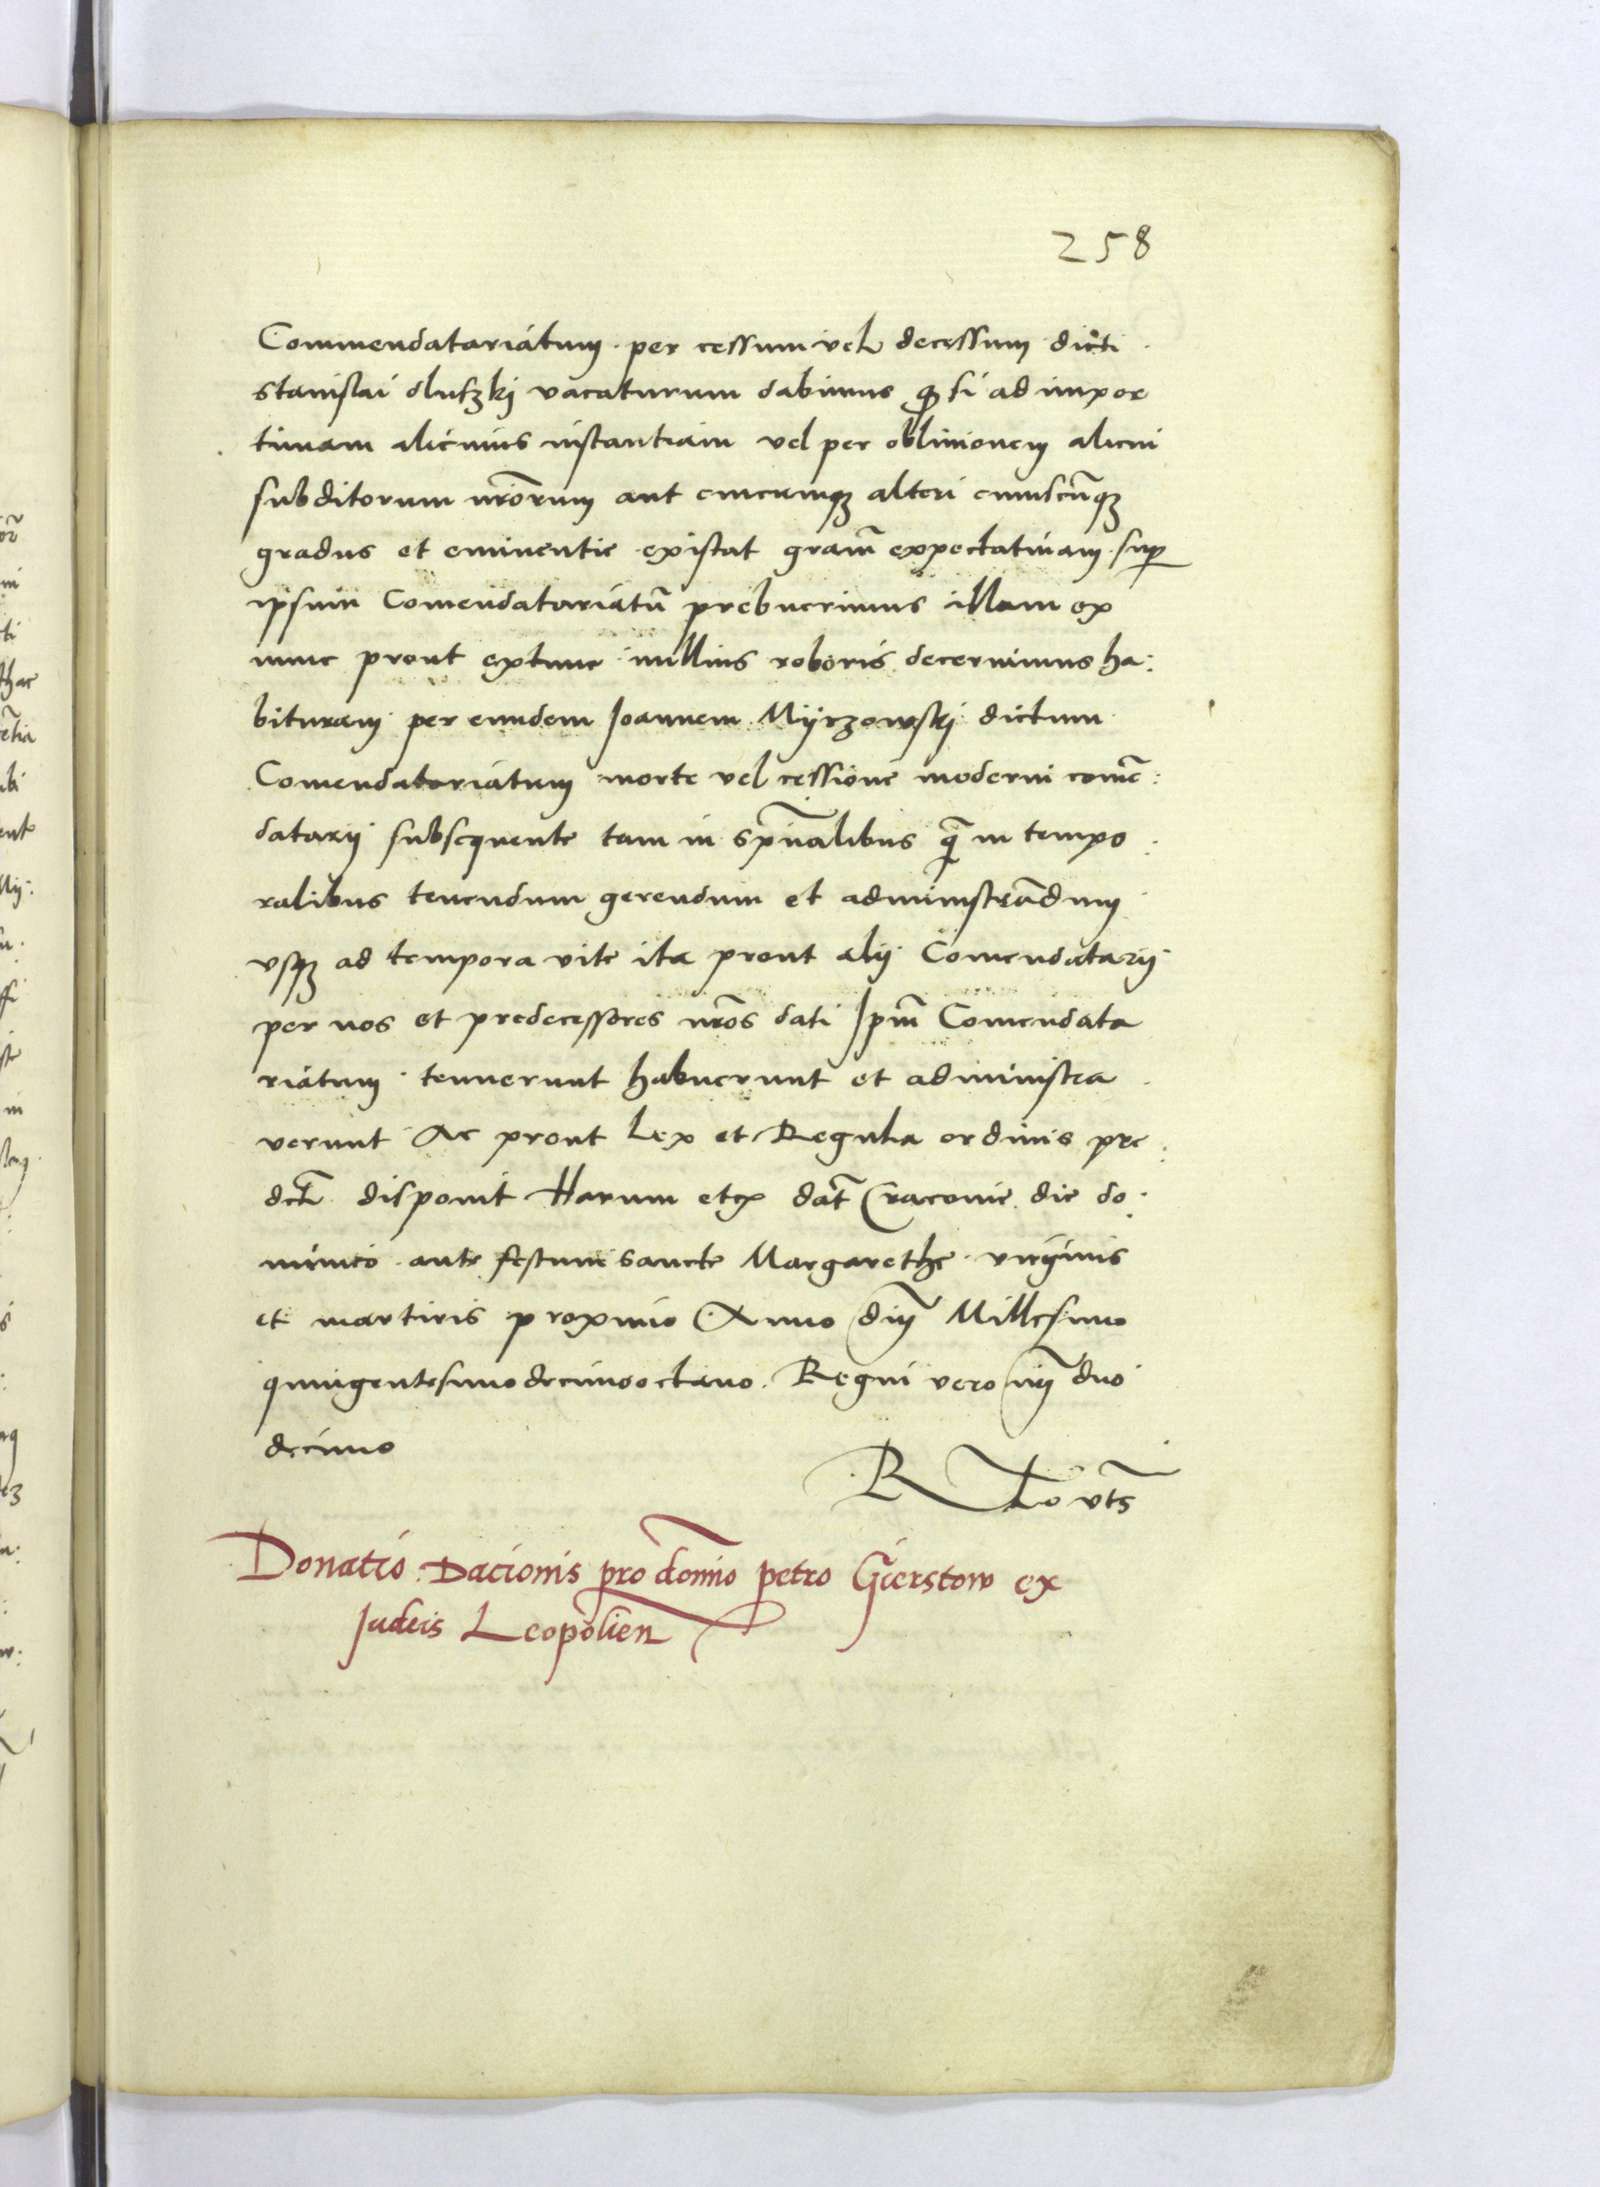 258
Commendatariatum per cessum vel decessum dicti
stanislai dluszkj vacaturum dabimus q si ad impor
tunam alicuius instantiam vel per oblivionem alicui
subditorum nrorum aut cuicumqz alteri cuiuscumqz
gradus et eminentie existat gram expectativam sup
ipsum Comendatariatu prebuerimus illam ex
nunc prout extunc nullius roboris decernimus ha:
bituram per eundem Joannem Myrzowskj dictum
Comendatariatum morte vel cessione moderni come:
datarij subsequente tam in spualibus q in tempo:
ralibus tenendum gerendum et administrandum
vsqz ad tempora vite ita prout alij Comendatarij
per nos et predecessores nros dati Ipm Comendata
riatum tenuerunt habuerunt et administra
verunt Ac prout Lex et Regula ordinis pre:
dct disponit Harum etc dat Cracovie die do:
minico ante festum sancte Margarethe virginis
et martiris proximo Anno dni Millesimo
quingentesimodecimooctavo. Regni vero nri duo
decimo
R to vts
Donatio Dacionis pro domino petro Gierstow ex
Judeis Leopolien